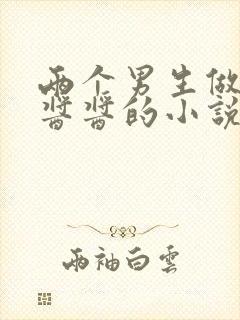 两个男生做
酱酱的小説
两袖白雲